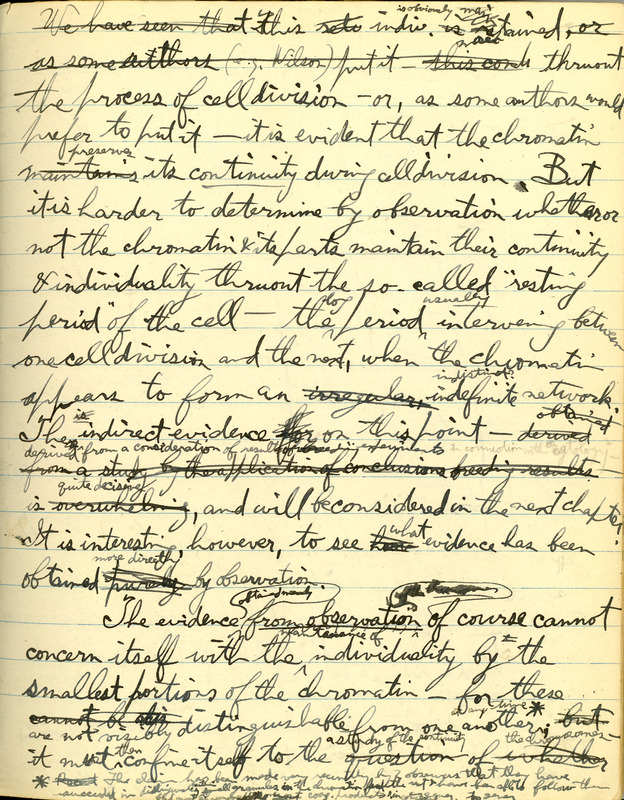 We have seen that this indiv. is obviously maintained, or
as some authors (e.g. Wilson) put it — this cont. thruout
the process of cell division — or, as some authors would
prefer to put it — it is evident that the chromatin
preserves
maintains its continuity during cell division. But
it is harder to determine by observation whether or
not the chromatin & its parts maintain their continuity
& individuality thruout the so-called "resting
period" of the cell — the long period usually intervening between
one cell division and the next, when the chromatin
appears to form an irregular, indistinct indefinite network.
The indirect evidence for on this point — derived obtained
derived from a consideration of results of
from a study by the application of conclusions breeding results
is overwhelming quite decisive, and will be considered in the next chapter.
It is interesting, however, to see how what evidence has been
obtained purely more directly by observation.
The evidence obtained from observation of course cannot
concern itself with the maintenance of individuality by the
smallest portions of the chromatin — for these
cannot be
are not visibly distinguishable from one another at any time*; but
it must then confine itself to a study of the continuity the question of whether
* The claim has been made very recently by observers that they have